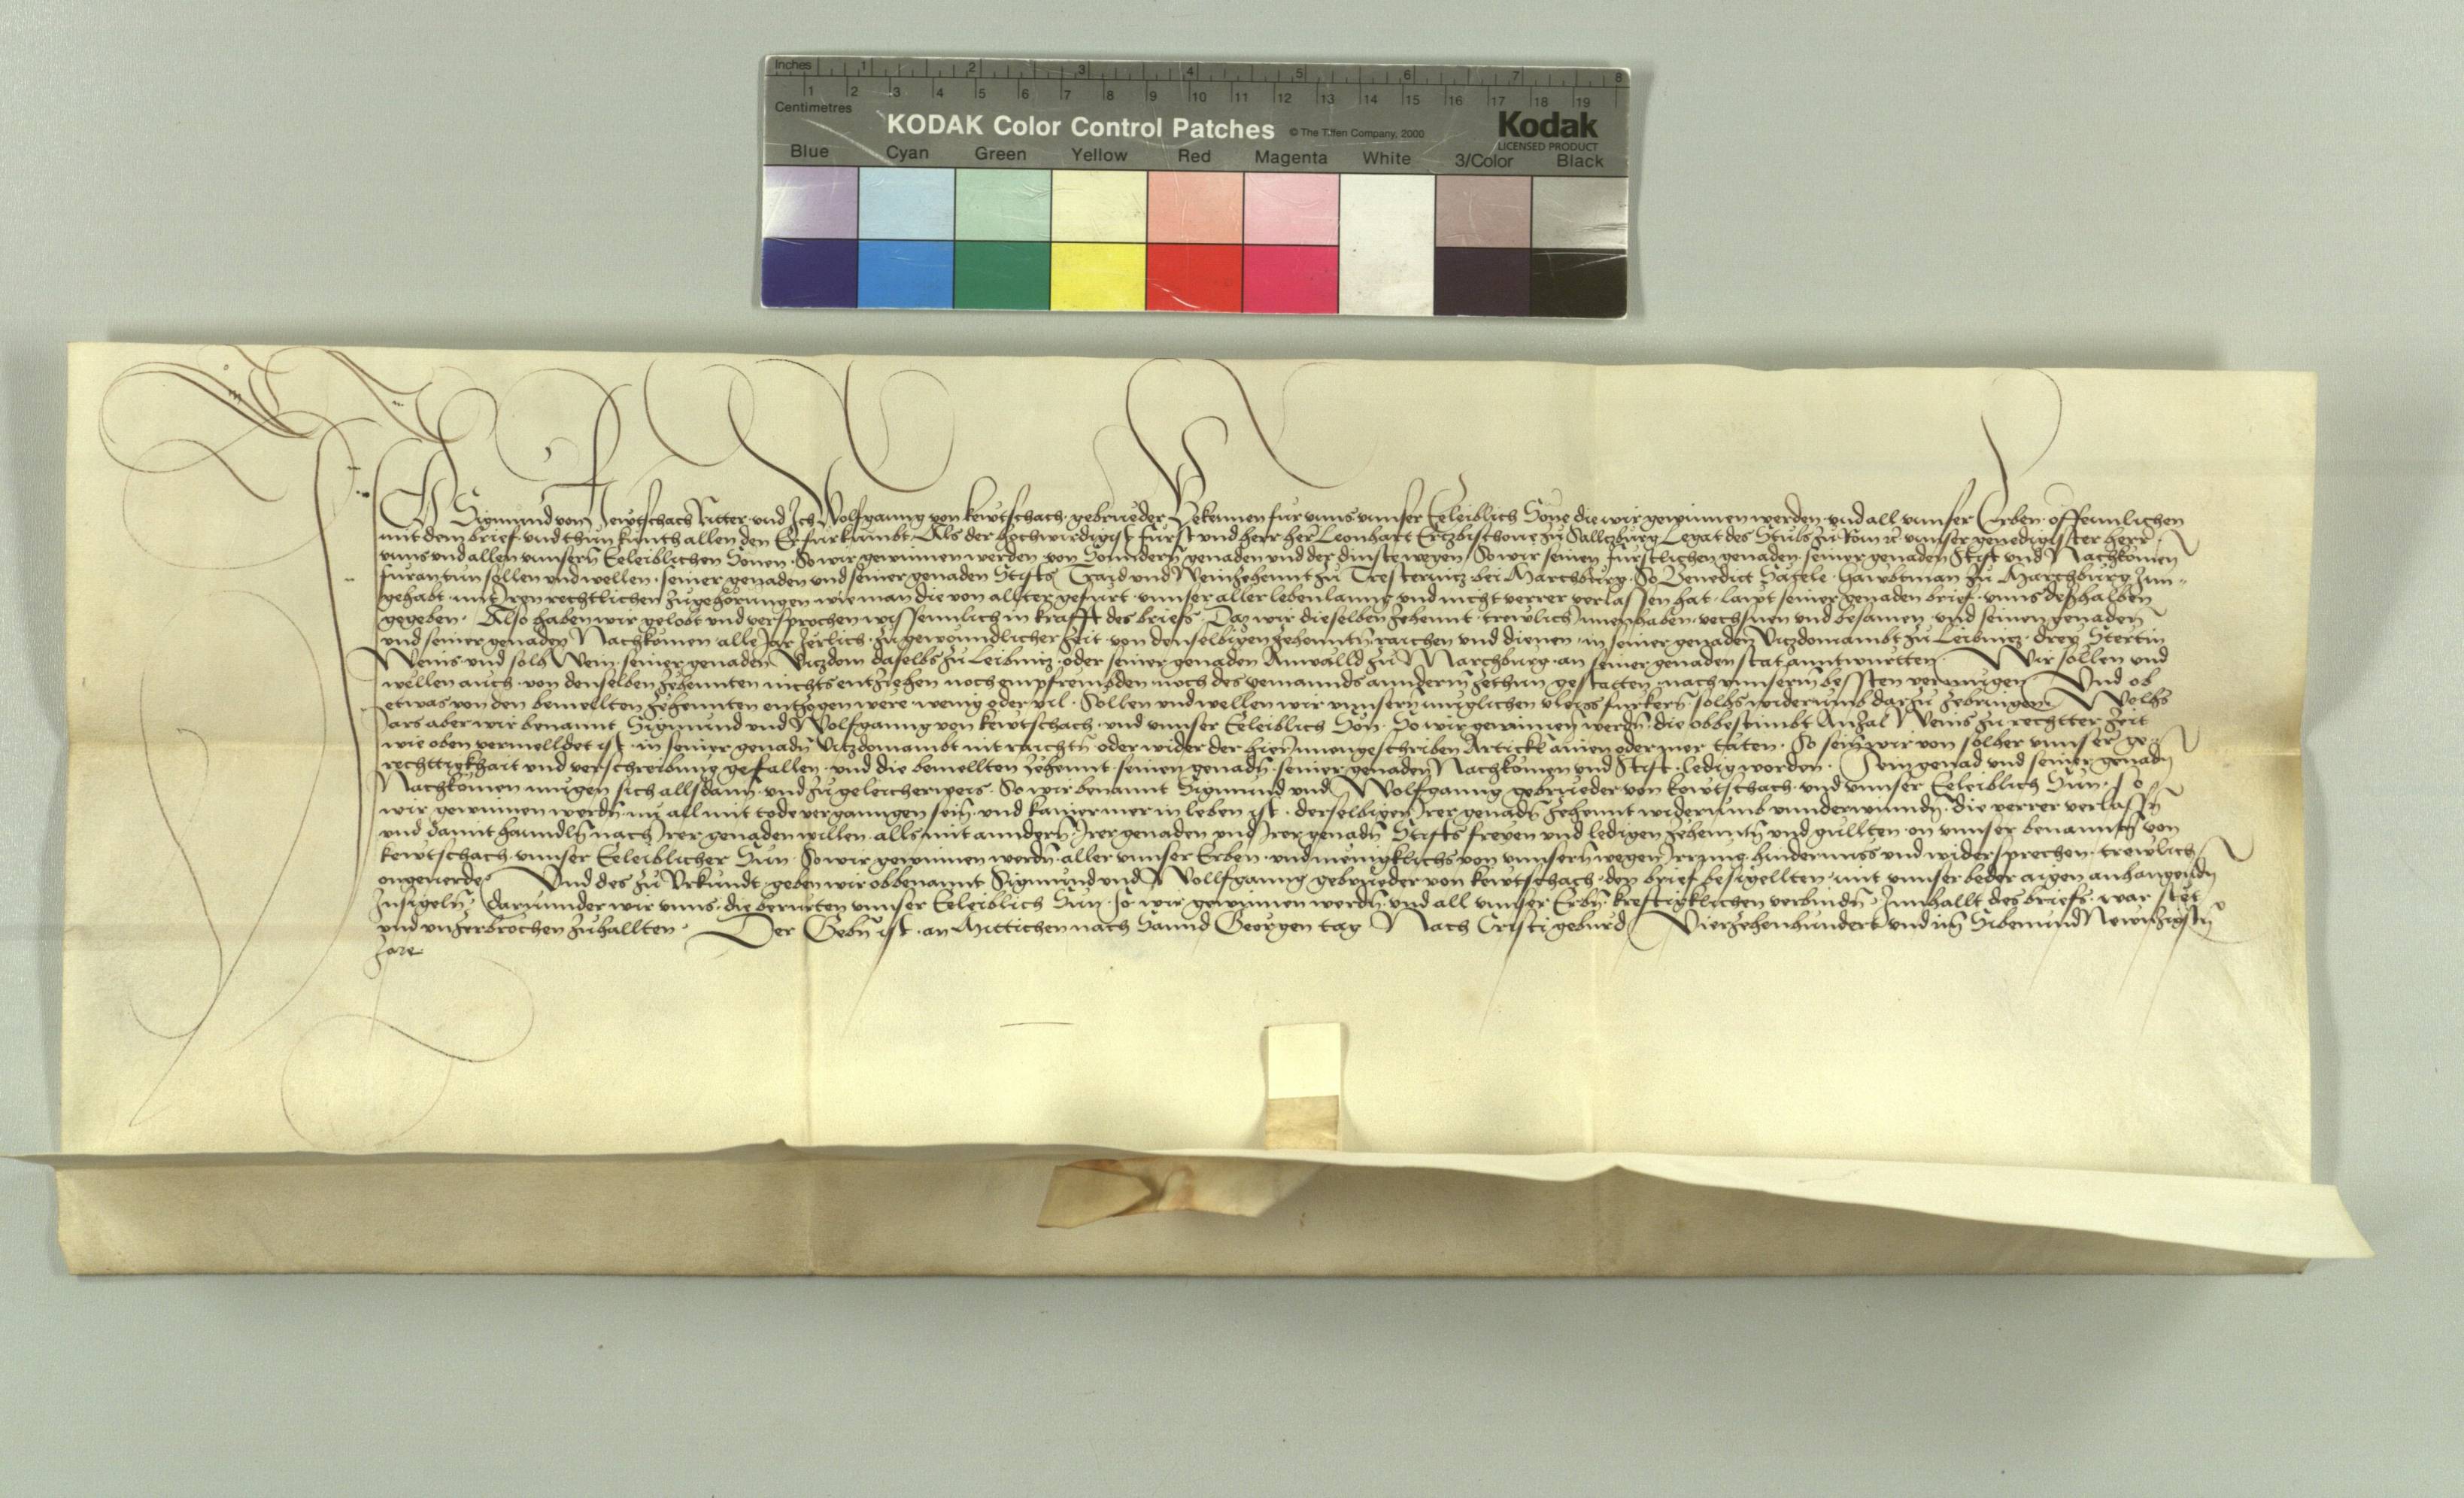 Inches 1 2 3 4 5 6 7 8
1 2 3 4 5 6 7 8 9 10 11 12 13 14 15 16 17 18 19
Centimetres
KODAK Color Control Patches © The Tiffen Company, 2000 Kodak
LICENSED PRODUCT
Blue Cyan Green Yellow Red Magenta White 3/Color Black
Ich Sigmund von Kewtschach Ritter und Ich Wolfganng von kewtschach gebrueder Bekennen fur unns unnser Eeleiblich Sone die wir gewinnen werden und all unnser Erben offennlichen
mit dem brief und thun kunth allen den Er furkumbt Als der hochwirdigist furst und herr her Leonhart Ertzbischove zu Salltzburg Legat des Stuls zu Rom unnser genedigister herr
unns und allen unnsern Eeleiblichen Sonen So wir gewinnen werden von Sonndern genaden und der dinste wegen So wir seinen furstlichen genaden seiner genaden Stift und Nachkomen
furan tun sollen und wellen seiner genaden und seiner genaden Stifts Traid und Weinzehennt zu Tresternitz bei Marchburg So Benedict hawbtman zu Marchburg Inn
gehabt mit Iren rechtlichen zugehorungen wie man die von allter gefurt unnser aller lebenlanng und nicht verrer verlassen hat lawt seiner genaden brief unns deshalben
gegeben Also haben wir gelobt und versprochen wissennlich in krafft des briefs Daz wir dieselben zehennt trewlich Innenhaben vechsnen und besamen und seinen genaden
und seiner genaden Nachkomen alle Jar Jerlich zu gewonndlicher zeit von denselbigen zehennten raichen und dienen in seiner genaden Vitzdomambt zu Leibnitz drey Stertin
Weins und solh Wein seiner genaden Vitzdom daselbs zu Leibnitz oder seiner genaden Anwalld zu Marchburg an seiner genaden stat anntwurtten Wir sollen und
wellen auch von denselben zehennten nichts entziehen noch empfrembden noch des yemannds anndern zethun gestatten nach unnserm bessten vermugen Und ob
etwas von den bemellten zehennten entzogen were wenig oder vil Sollen und wellen wir unnsern muglichen vleiss furkern solhs widerumb darzu zebringen Welhs
Jars aber wir benannt Sigmund und Wolfganng von kewtschach und unnser Eeleiblich Son So wir gewinnen werdn die obbestimbt Anzal Weins zu rechter zeit
wie oben vermelldet ist in seiner genadn Vitzdomambt nit raichtn oder wider der hierinnengeschriben Artickl ainen oder mer taten So sein wir von solher unnser ge-
rechttigkhait und verschreibung gefallen und die bemellten zehennt seinen genadn seiner genaden Nachkomen und Stift ledig worden Sein genad und seiner genadn
Nachkomen mugen sich allsdann und zu geleicherweis So wir benannt Sigmund und Wolfganng gebrueder von kewtschach und unnser Eeleiblich Sun so
wir gewinnen werdn nu all mit tode verganngen sein und kainer mer in leben ist derselbigen Irer genadn zehennt widerumb unnderwinndn die verrer verlassn
und damit hanndln nach Irer genaden willen alls mit anndern Irer genaden und Irer genadn Stifts freyen und ledigen zehenntn und gullten on unnser benannten von
kewtschach unnser Eeleiblicher Sun So wir gewinnen werdn aller unnser Erben und menigklichs von unnsern wegen Irrung hindernuss und widersprechen trewlich
ongeuerde Und des zu Urkundt geben wir obbenannt Sigmund und Wollfganng gebrueder von kewtschach den brief besigellten mit unnser beder aigen anhangendn
Insigeln Darunnder wir unns die berurten unnser Eeleiblich Sun so wir gewinnen werdn und all unnser Erbn kreftigklichen verbindn Innhallt des briefs war stet
und unzerbrochen zuhallten Der Gebn ist an Mittichen nach Sannd Georgen tag Nach Cristi geburd Vierzehenhundert und im Sibenund Newnzigistn
Jare